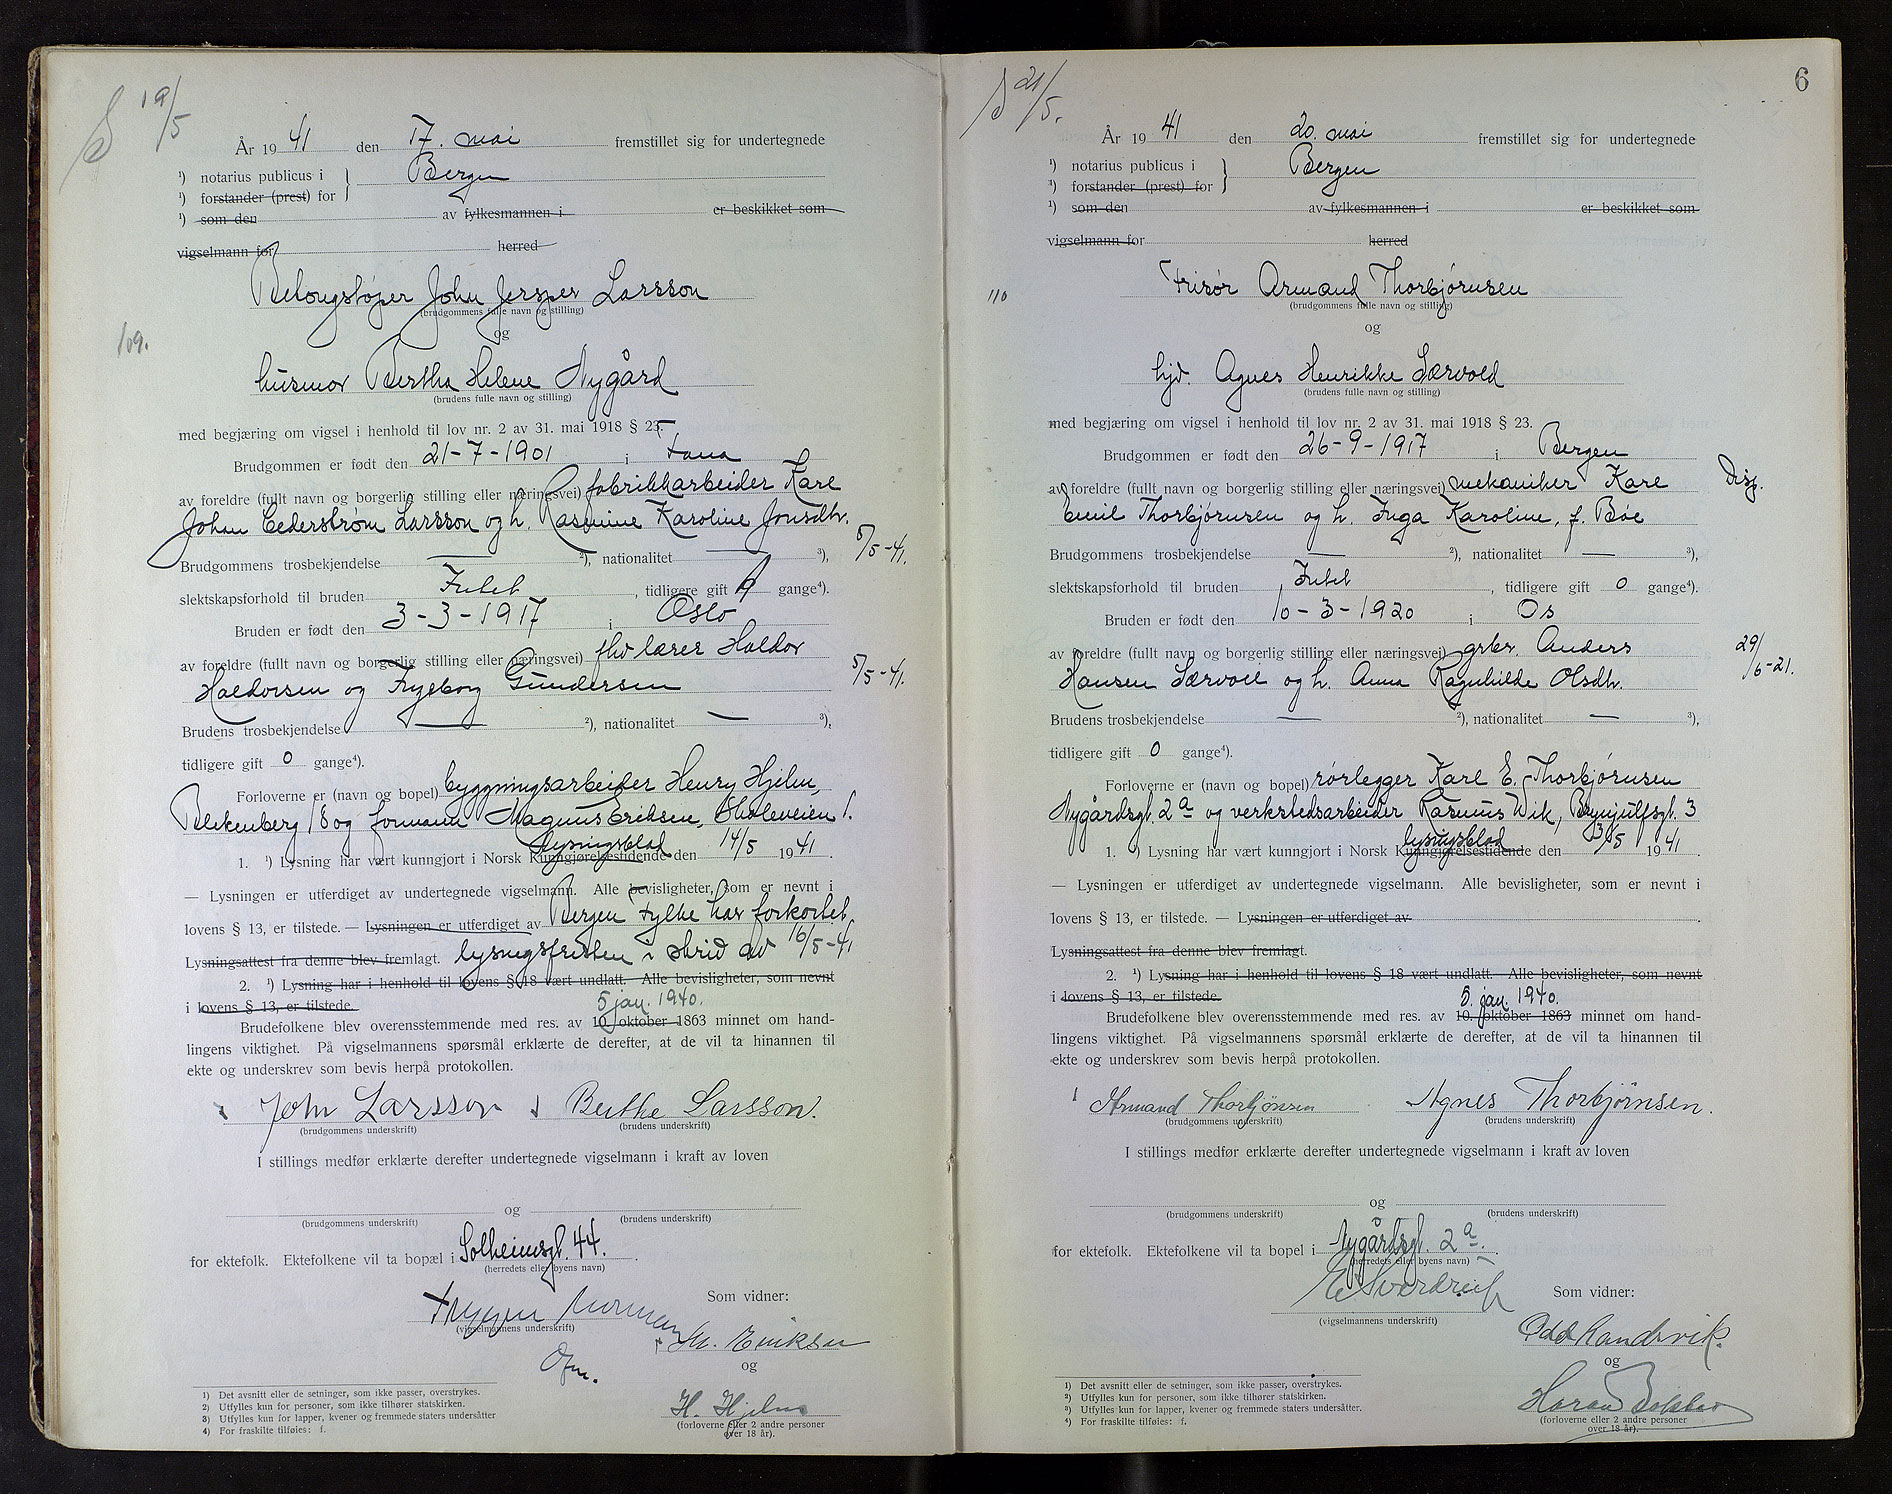 19/5
År 19 41 den 17. mai fremstillet sig for undertegnede
¹) notarius publicus i Bergen
¹) forstander (prest) for
¹) som den av fylkesmannen i er beskikket som
vigselmann for herred
Betongstøper John Jesper Larsson
(brudgommens fulle navn og stilling)
og
109.
husmor Bertha Helene Nygård
(brudens fulle navn og stilling)
med begjæring om vigsel i henhold til lov nr. 2 av 31. mai 1918 § 23.
Brudgommen er født den 21-7-1901 i Fana
av foreldre (fullt navn og borgerlig stilling eller næringsvei) fabrikkarbeider Karl
Johan Cederstrøm Larsson og h. Rasmine Karoline Jonsdtr. 5/5-41.
Brudgommens trosbekjendelse — ²), nationalitet — ³),
slektskapsforhold til bruden Intet, tidligere gift gange⁴).
Bruden er født den 3-3-1917 i Oslo
av foreldre (fullt navn og borgerlig stilling eller næringsvei) fhv lærer Haldor
Haldorsen og Ingeborg Gundersen 5/5-41.
Brudens trosbekjendelse — ²), nationalitet — ³),
tidligere gift 0 gange⁴).
Forloverne er (navn og bopel) bygningsarbeider Henry Hjelm,
Blekenberg 18 og formann Magnus Eriksen, Skoleveien 1.
lysningsblad
1. ¹) Lysning har vært kunngjort i Norsk Kunngjørelsestidende den 14/5 19 41.
— Lysningen er utferdiget av undertegnede vigselmann. Alle bevisligheter, som er nevnt i
lovens § 13, er tilstede. — Lysningen er utferdiget av Bergen fylke har forkortet
Lysningsattest fra denne blev fremlagt. lysningsfristen i skriv av 16/5-41
2. ¹) Lysning har i henhold til lovens § 18 vært undlatt. Alle bevisligheter, som nevnt
i lovens § 13, er tilstede. 5 jan. 1940.
Brudefolkene blev overensstemmende med res. av 10. oktober 1863 minnet om hand-
lingens viktighet. På vigselmannens spørsmål erklærte de derefter, at de vil ta hinannen til
ekte og underskrev som bevis herpå protokollen.
John Larsson Berthe Larsson.
(brudgommens underskrift) (brudens underskrift)
I stillings medfør erklærte derefter undertegnede vigselmann i kraft av loven
og
(brudgommens underskrift) (brudens underskrift)
for ektefolk. Ektefolkene vil ta bopæl i Solheimsgt. 44.
(herredets eller byens navn)
Som vidner:
(vigselmannens underskrift)
M. Eriksen
og
H. Hjelm
(forloverne eller 2 andre personer
over 18 år).
¹) Det avsnitt eller de setninger, som ikke passer, overstrykes.
²) Utfylles kun for personer, som ikke tilhører statskirken.
³) Utfylles kun for lapper, kvener og fremmede staters undersåtter
⁴) For fraskilte tilføies: f.
6
21/5.
År 19 41 den 20. mai fremstillet sig for undertegnede
¹) notarius publicus i Bergen
¹) forstander (prest) for
¹) som den av fylkesmannen i er beskikket som
vigselmann for herred
110
Frisør Armand Thorbjørnsen
(brudgommens fulle navn og stilling)
og
hjd. Agnes Henrikke Særvold
(brudens fulle navn og stilling)
med begjæring om vigsel i henhold til lov nr. 2 av 31. mai 1918 § 23.
Brudgommen er født den 26-9-1917 i Bergen
av foreldre (fullt navn og borgerlig stilling eller næringsvei) mekaniker Karl Disp.
Emil Thorbjørnsen og h. Inga Karoline, f. Bøe
Brudgommens trosbekjendelse — ²), nationalitet — ³),
slektskapsforhold til bruden Intet, tidligere gift 0 gange⁴).
Bruden er født den 10-3-1920 i Os
av foreldre (fullt navn og borgerlig stilling eller næringsvei) grbr. Anders 29/6-21.
Hansen Særvoll og h. Anna Ragnhilde Olsdtr.
Brudens trosbekjendelse — ²), nationalitet — ³),
tidligere gift 0 gange⁴).
Forloverne er (navn og bopel) rørlegger Karl E. Thorbjørnsen
Nygårdsgt. 2 a og verkstedsarbeider Rasmus Wik, Brynjulfsgt. 3
lysningsblad
1. ¹) Lysning har vært kunngjort i Norsk Kunngjørelsestidende den 13/5 19 41.
— Lysningen er utferdiget av undertegnede vigselmann. Alle bevisligheter, som er nevnt i
lovens § 13, er tilstede. — Lysningen er utferdiget av
Lysningsattest fra denne blev fremlagt.
2. ¹) Lysning har i henhold til lovens § 18 vært undlatt. Alle bevisligheter, som nevnt
i lovens § 13, er tilstede. 5. jan. 1940.
Brudefolkene blev overensstemmende med res. av 10. oktober 1863 minnet om hand-
lingens viktighet. På vigselmannens spørsmål erklærte de derefter, at de vil ta hinannen til
ekte og underskrev som bevis herpå protokollen.
Armand Thorbjønsen Agnes Thorbjørnsen.
(brudgommens underskrift) (brudens underskrift)
I stillings medfør erklærte derefter undertegnede vigselmann i kraft av loven
og
(brudgommens underskrift) (brudens underskrift)
for ektefolk. Ektefolkene vil ta bopel i Nygårdsgt. 2 a.
(herredets eller byens navn)
E Sverdrup
Som vidner:
(vigselmannens underskrift)
Odd Randsvik.
og
(forloverne eller 2 andre personer
over 18 år).
¹) Det avsnitt eller de setninger, som ikke passer, overstrykes.
²) Utfylles kun for personer, som ikke tilhører statskirken.
³) Utfylles kun for lapper, kvener og fremmede staters undersåtter.
⁴) For fraskilte tilføies: f.